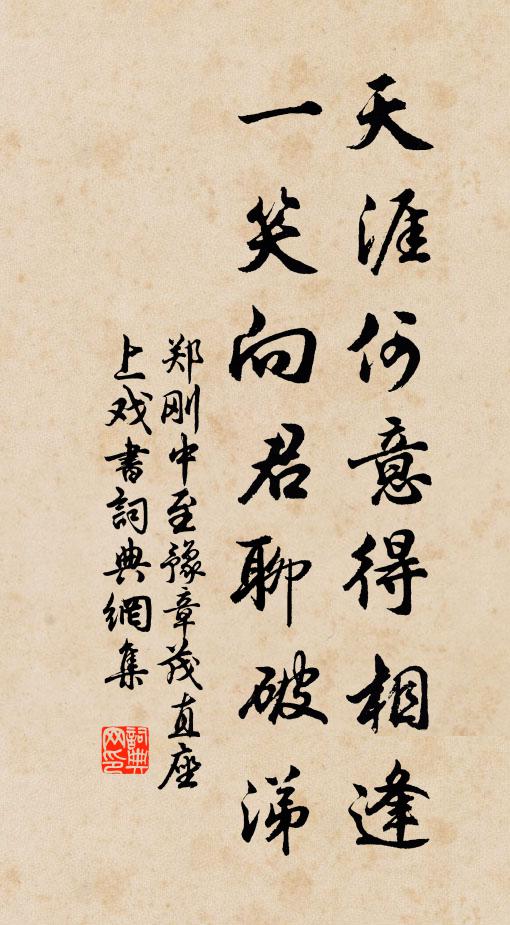 天涯何意得相逢
一笑向君聊破涕
郑刚中至豫章茂直座
上戏書詞典網集
詞典网印